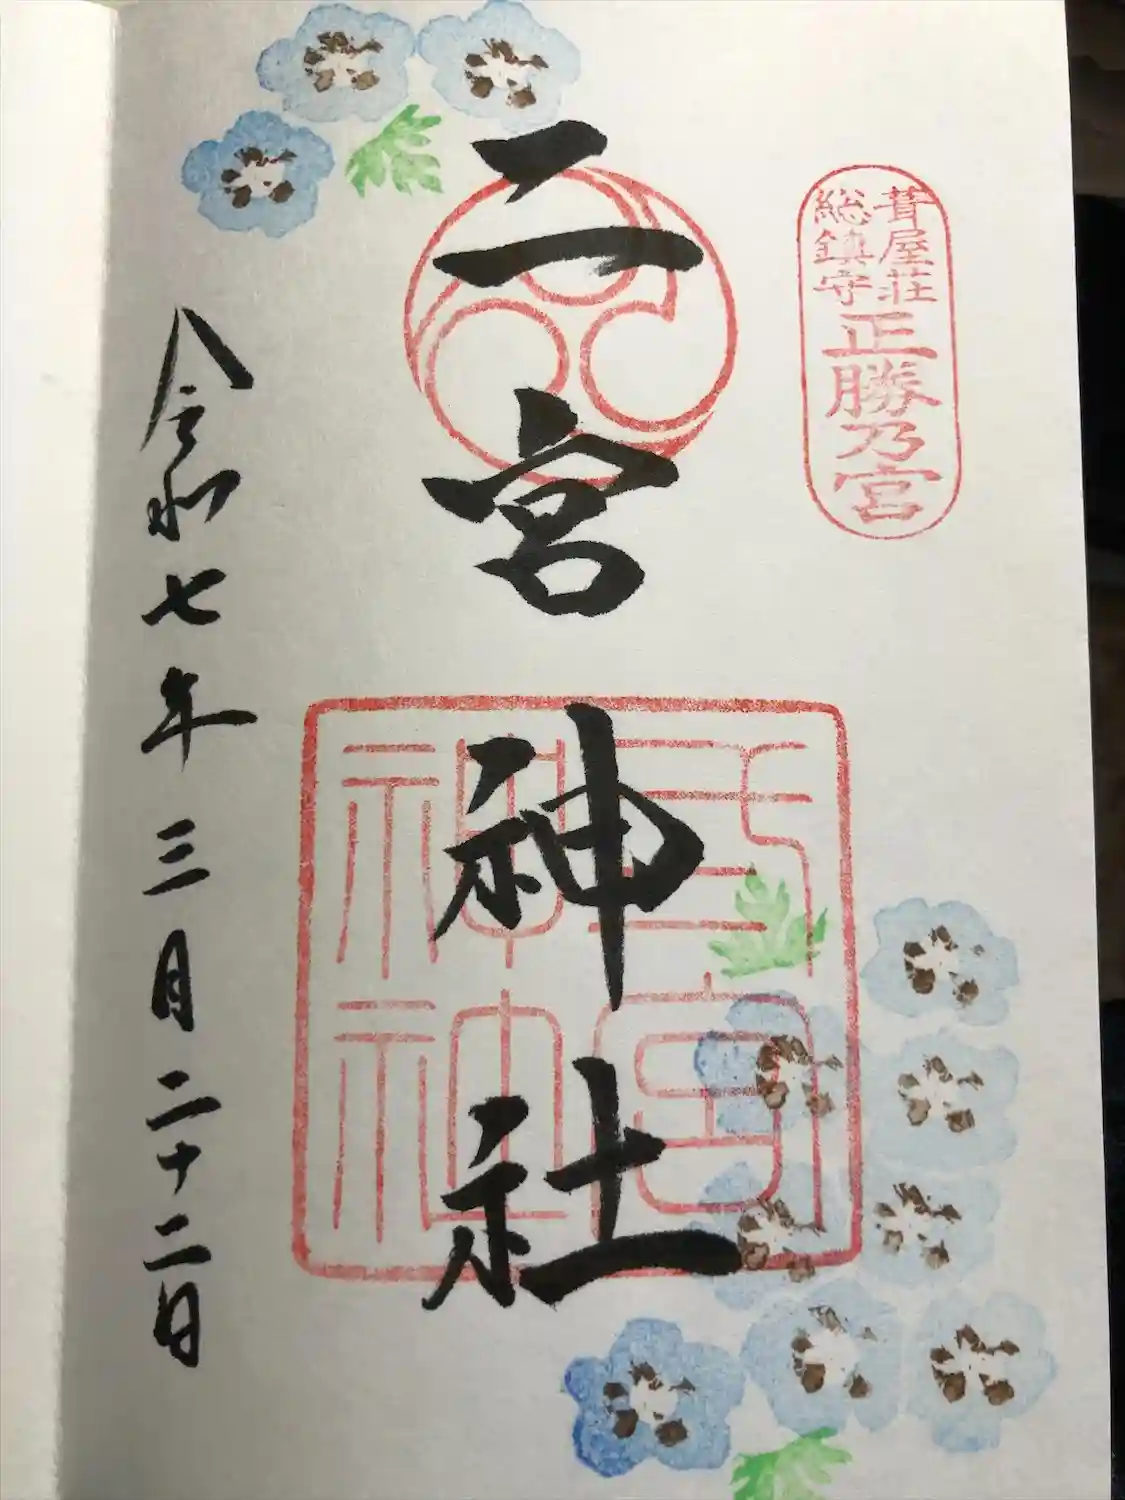 葺屋荘
総鎮守
正勝乃宮
二宮神社
令和七年三月二十二日